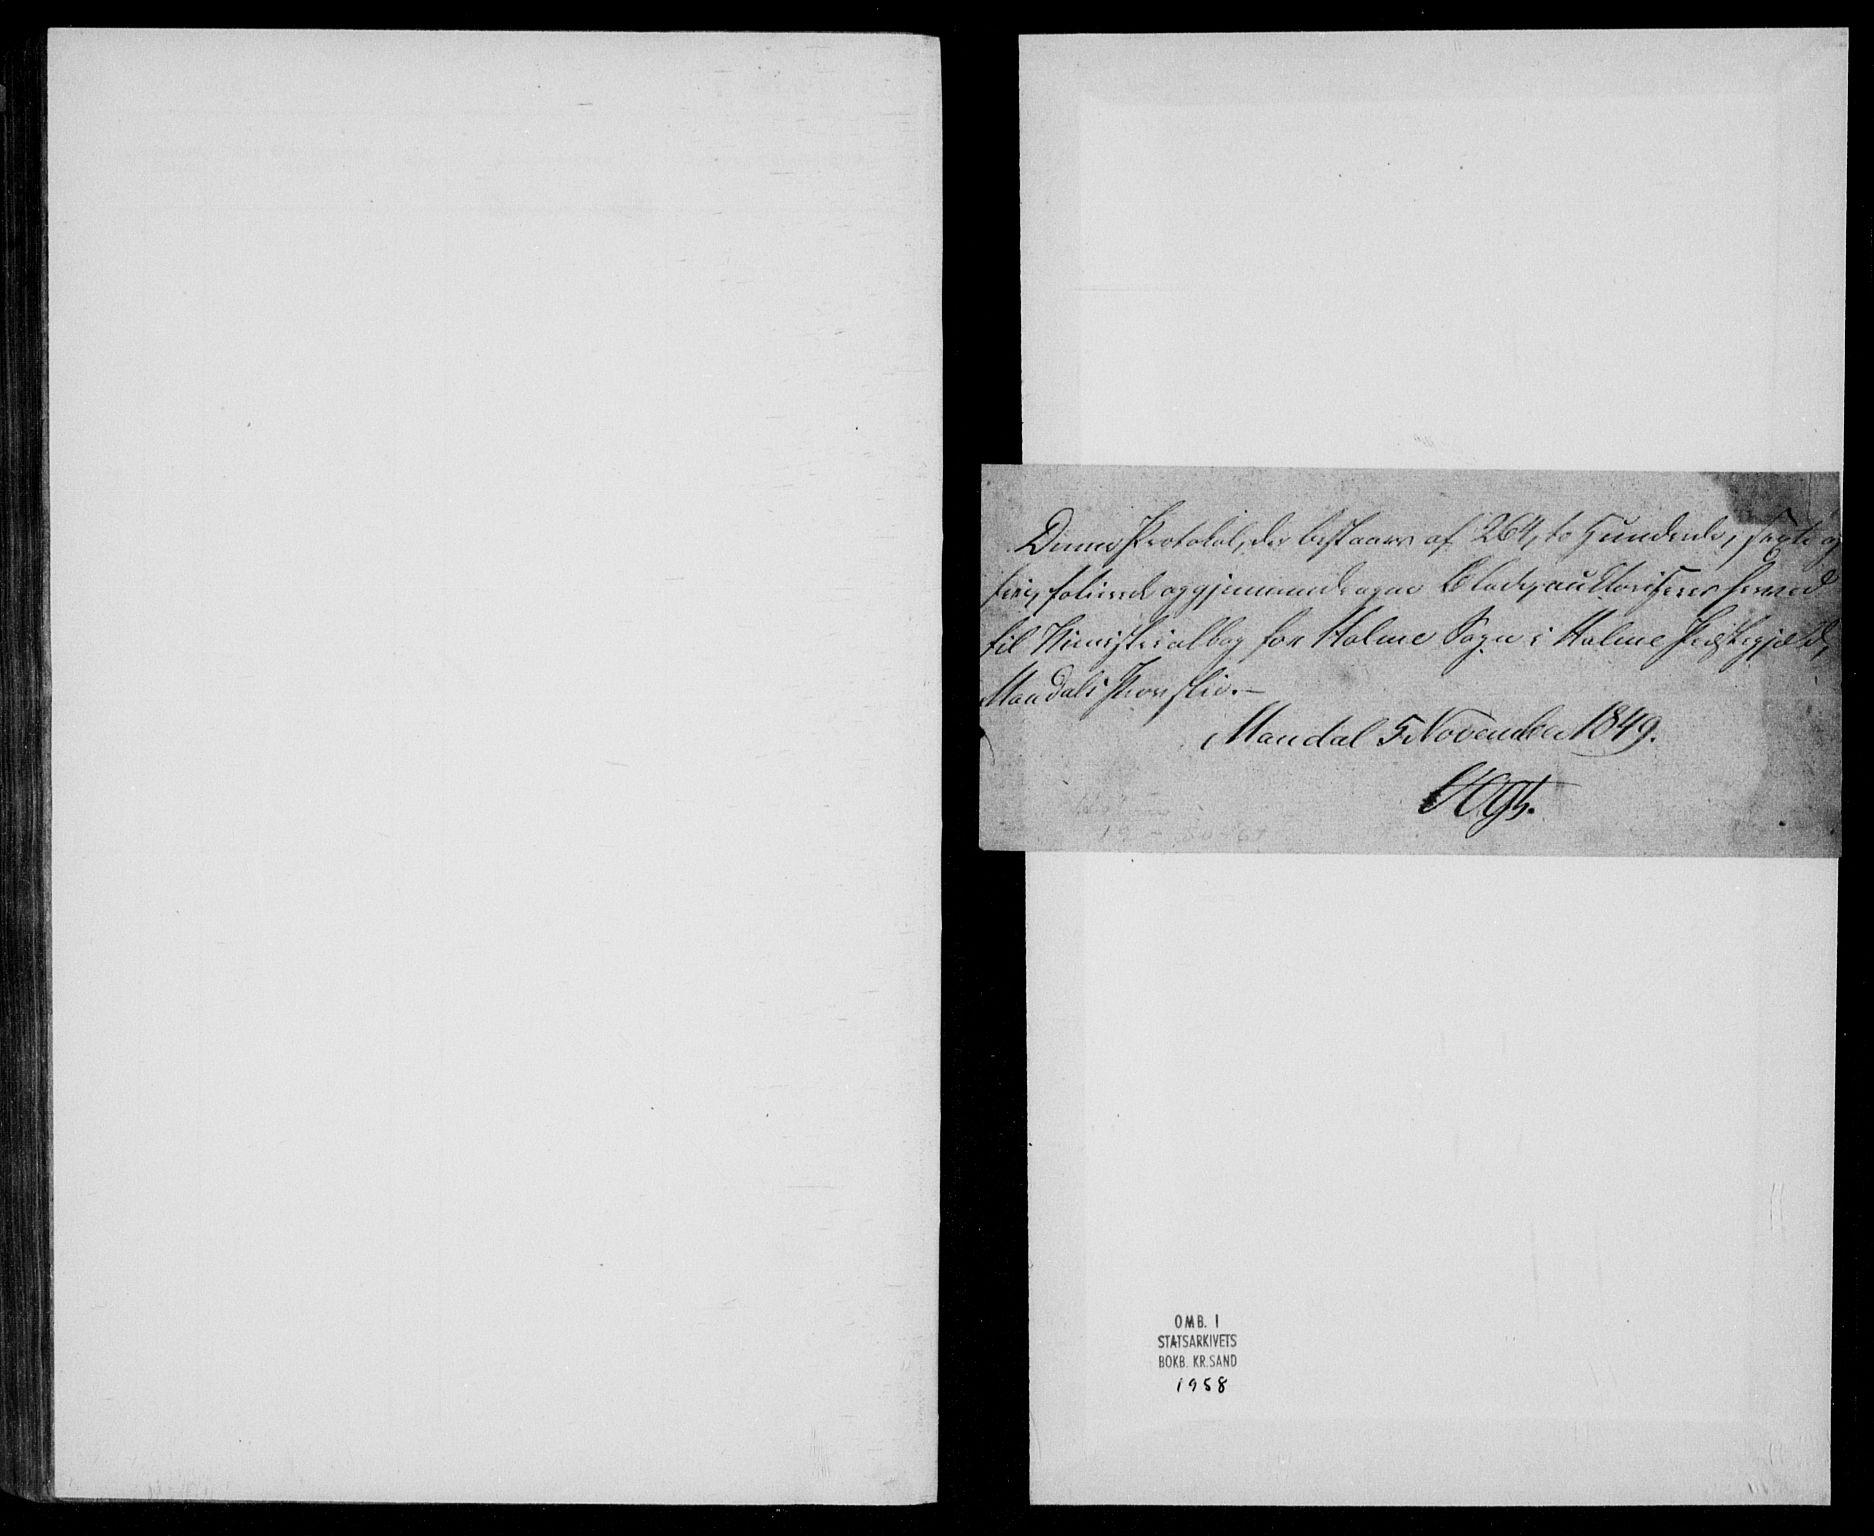 Denne Protokol, der bestaaer af 264, to Hundrede, sexti og
fire, folierede og gjennemdragne Blade, auktoriseres herved
til Ministerialbog for Holme Sogn i Holme Præstegjæld,
Mandals Provstie.-
Mandal 5 November 1849.
OMB. I
STATSARKIVETS
BOKB. KR.SAND
1958